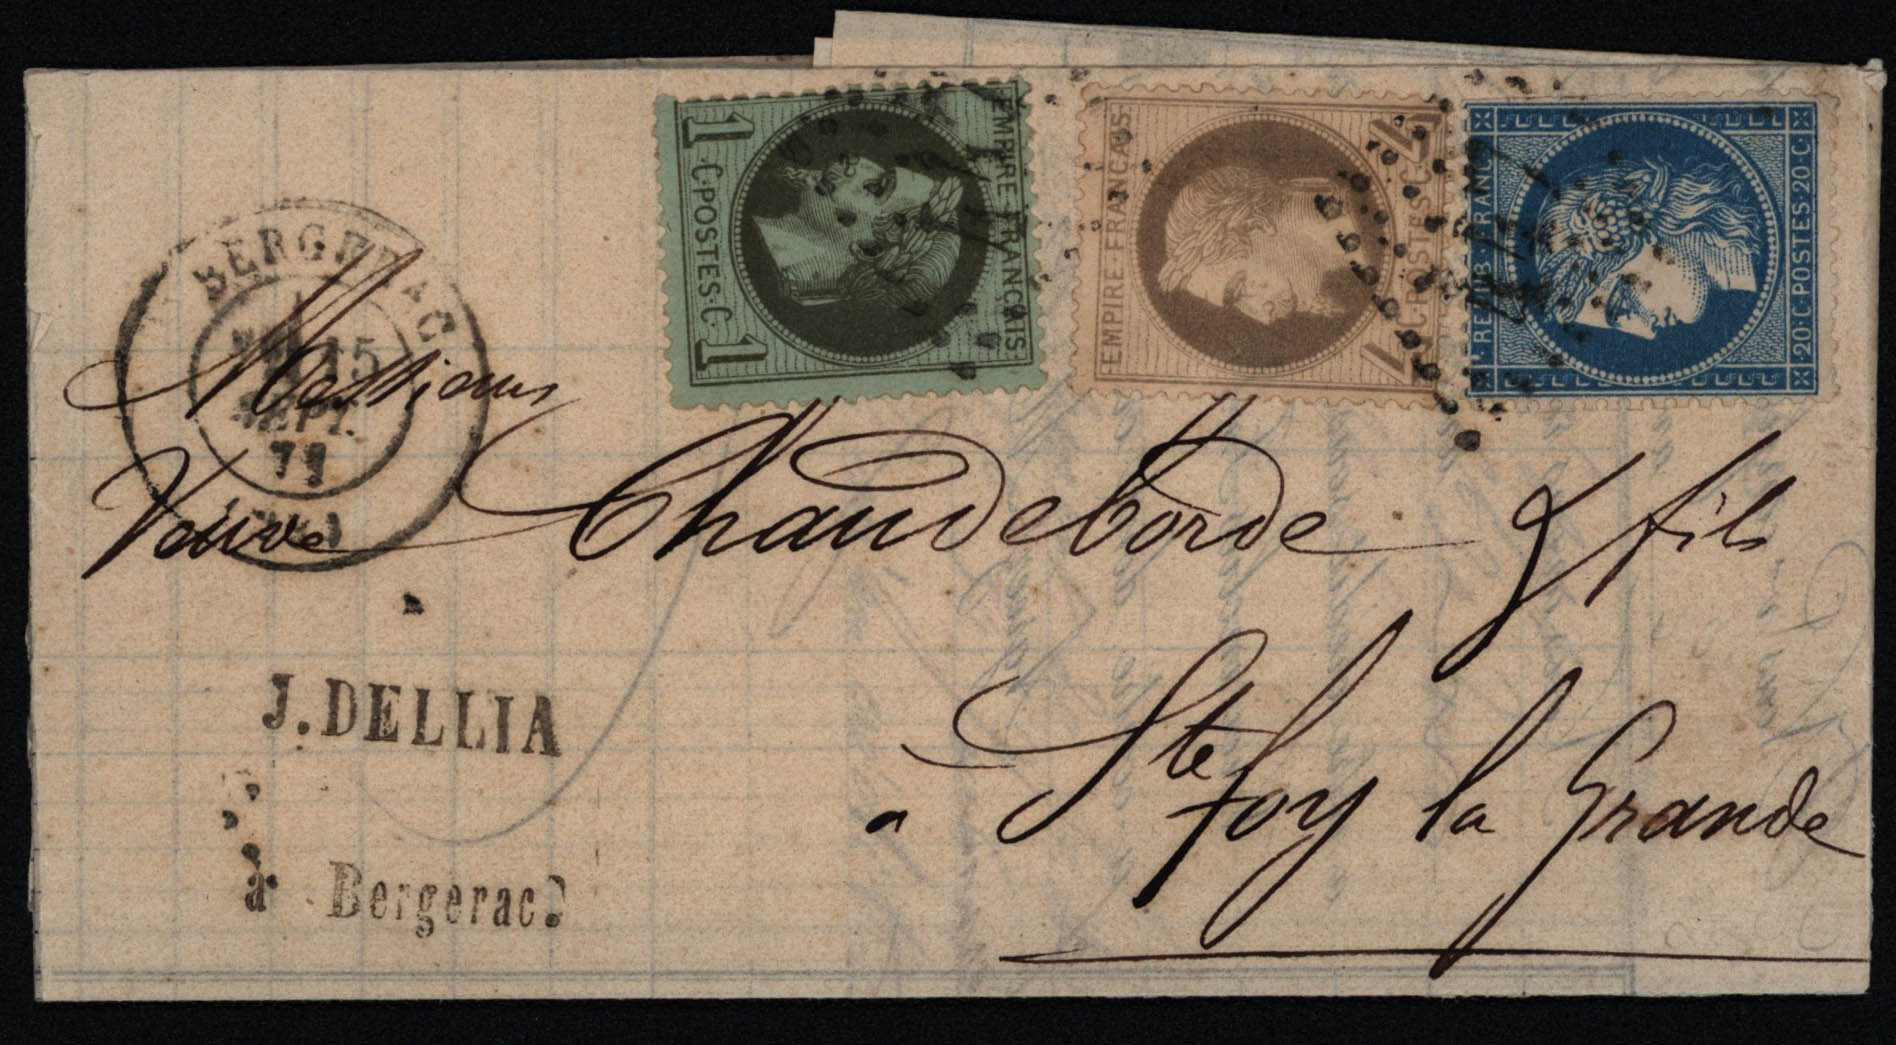 1 EMPIRE·FRANCAIS 1
1·C·POSTES·C·1
EMPIRE·FRANCAIS·
4·C·POSTES·C·4
REPUB·FRANC·
20·C·POSTES·20·C·
BERGERAC
15
SEPT.
71
Messieurs
Veuve Chandeborde & fils
J. DELLIA
à Bergerac
a Ste foy la Grande